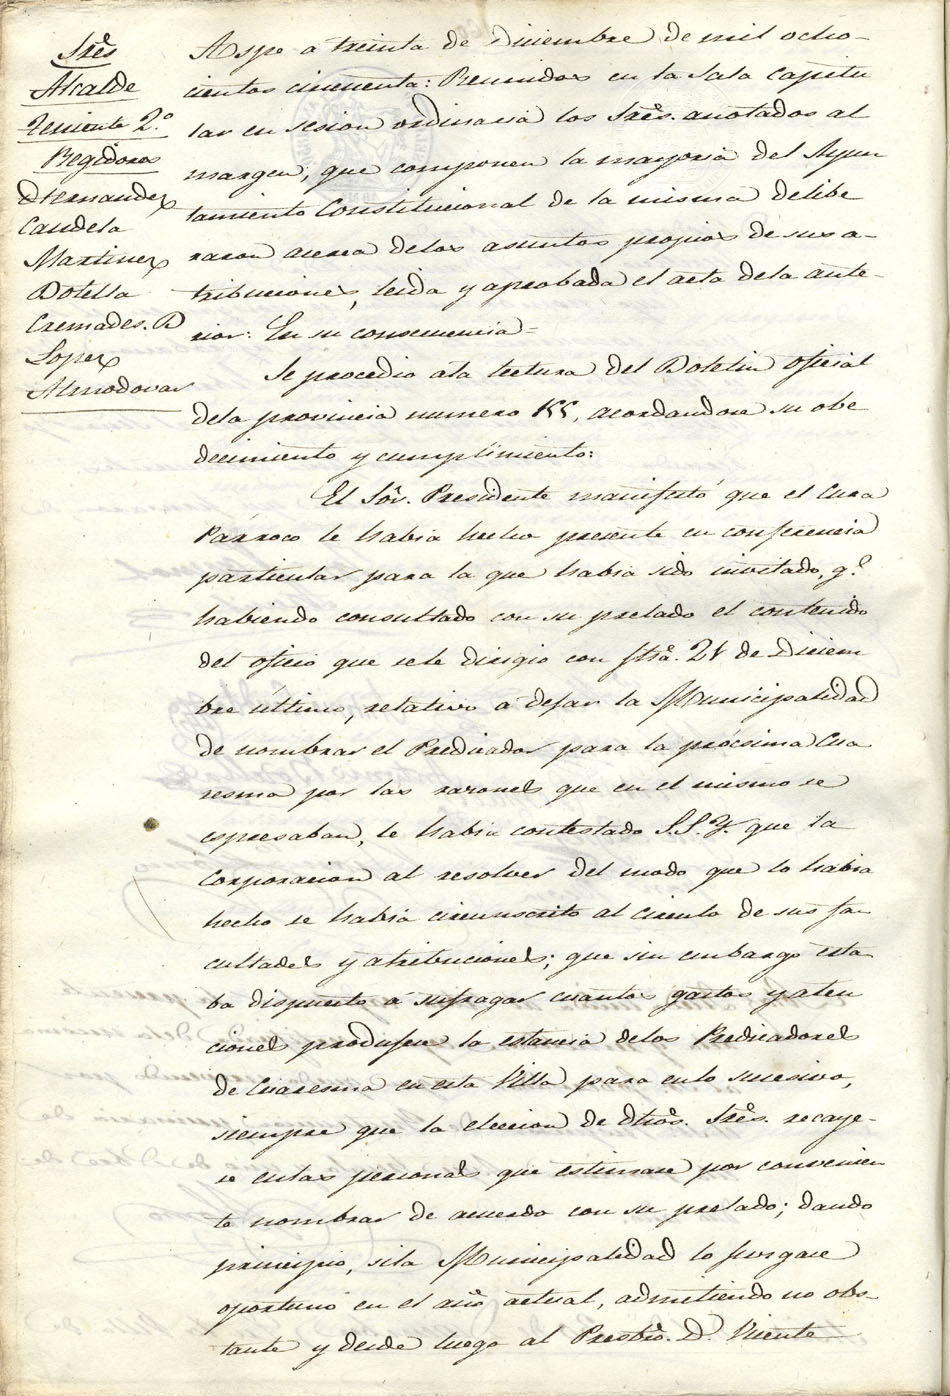 Sres
Alcalde
Teniente 2.º
Regidores
D Hernandez
Candela
Martinez
Botella
Cremades. D
Lopez
Almodovar
Aspe a treinta de Diciembre de mil ocho-
cientos cincuenta: Reunidos en la Sala Capitu
lar en sesion ordinaria los Sres. anotados al
margen, que componen la mayoria del Ayun
tamiento Constitucional de la misma delibe
raron acerca delos asuntos propios de sus a-
tribuciones, leida y aprobada el acta dela ante-
rior: En su consecuencia=
Se procedio ala lectura del Boletin oficial
dela provincia numero 155, acordandose su obe
decimiento y cumplimiento:
El Sor. Presidente manifestó que el Cura
Párroco le habia hecho presente en conferencia
particular para la que habia sido invitado, q.e
habiendo consultado con su prelado el contenido
del oficio que sele dirigio con ftha. 21 de Diciem
bre último, relativo á dejar la Municipalidad
de nombrar el Predicador para la prócsima Cua
resma por las razones que en el mismo se
espresaban, le habia contestado S.S.Y. que la
Corporacion al resolver del modo que lo habia
hecho se habia circunscrito al circulo de sus fa
cultades y atribuciones; que sin embargo esta
ba dispuesto á sufragar cuantos gastos y aten
ciones produjese la estancia delos Predicadores
de Cuaresma en esta Villa para enlo sucesivo,
siempre que la eleccion de dhos. Sres. recaye-
se enlas personas que estimase por convenien
te nombrar de acuerdo con su prelado; dando
principio, sila Municipalidad lo jusgase
oportuno en el año actual, admitiendo no obs-
tante y desde luego al Presbro. D. Vicente